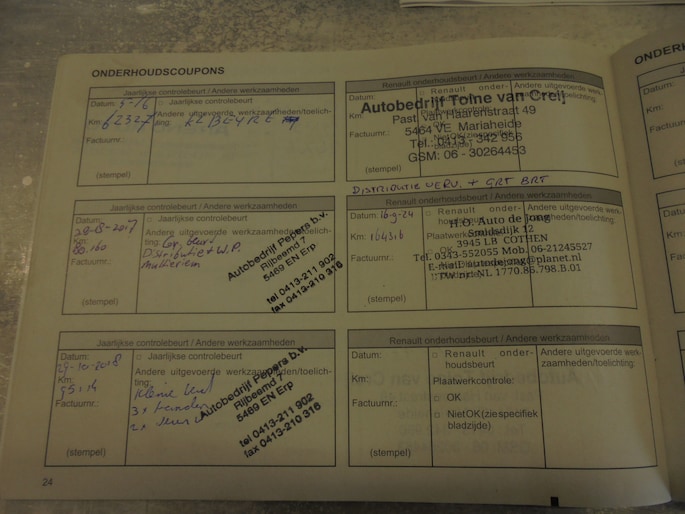 ONDERHOUDSCOUPONS
ONDERH
Jaarlijkse controlebeurt / Andere werkzaamheden
Datum: 5-16
○ Jaarlijkse controlebeurt
Km: 62327
Andere uitgevoerde werkzaamheden/toelich-
ting: KLBEURT
Factuurnr.:
(stempel)
Renault onderhoudsbeurt / Andere werkzaamheden
Datum:
○ Renault onder-
houdsbeurt
Andere uitgevoerde werk-
zaamheden/toelichting:
Km:
Factuurnr.:
(stempel)
Autobedrijf Toine van Creij
Past. van Haarenstraat 49
5464 VE Mariaheide
Tel.: 0413 - 342 956
GSM: 06 - 30264453
Jaarlijkse controlebeurt / Andere werkzaamheden
Datum:
28-8-2017
○ Jaarlijkse controlebeurt
Km:
80.160
Andere uitgevoerde werkzaamheden/toelich-
ting: Gr. beurt
Distributie + W.P.
multiriem
Factuurnr.:
(stempel)
Autobedrijf Pepers b.v.
Rijbeemd 7
5469 EN Erp
tel 0413-211 902
fax 0413-210 316
DISTRIBUTIE VERV. + GRT BRT
Renault onderhoudsbeurt / Andere werkzaamheden
Datum: 16-9-24
○ Renault onder-
houdsbeurt
Andere uitgevoerde werk-
zaamheden/toelichting:
Km:
164316
Plaatwerkcontrole:
○ OK
Factuurnr.:
(stempel)
H.O. Auto de Jong
Smidsdijk 12
3945 LB COTHEN
Tel. 0343-552055 Mob. 06-21245527
E-mail: autodejong@planet.nl
BTW nr. NL 1770.86.798.B.01
Jaarlijkse controlebeurt / Andere werkzaamheden
Datum:
29-10-2018
○ Jaarlijkse controlebeurt
Km:
Andere uitgevoerde werkzaamheden/toelich-
ting:
Kleine beurt
Factuurnr.:
3x
2x
(stempel)
Autobedrijf Pepers b.v.
Rijbeemd 7
5469 EN Erp
tel 0413-211 902
fax 0413-210 316
Renault onderhoudsbeurt / Andere werkzaamheden
Datum:
○ Renault onder-
houdsbeurt
Andere uitgevoerde werk-
zaamheden/toelichting:
Km:
Plaatwerkcontrole:
○ OK
Factuurnr.:
○ NietOK(ziespecifiek
bladzijde)
(stempel)
24